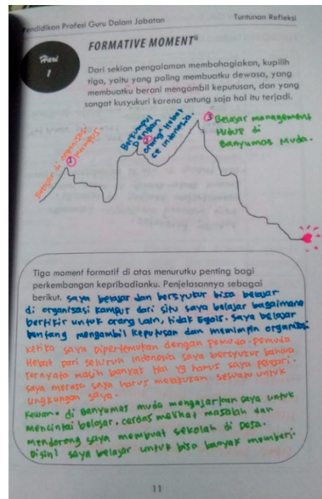 Pendidikan Profesi Guru Dalam Jabatan
Tuntunan Refleksi
Hari
1
FORMATIVE MOMENT
Dari sekian pengalaman membahagiakan, kupilih
tiga, yaitu yang paling membuatku dewasa, yang
membuatku berani mengambil keputusan, dan yang
sangat kusyukuri karena untung saja hal itu terjadi.
Belajar di organisasi
kampus
1
Berkumpul
dengan
orang² Hebat
se Indonesia.
2
3 Belajar management
Hidup di
Banyumas Muda.
Tiga moment formatif di atas menurutku penting bagi
perkembangan kepribadianku. Penjelasannya sebagai
berikut. saya belajar dan bersyukur bisa belajar
di organisasi kampus dari situ saya belajar bagaimana
berfikir untuk orang lain, tidak Egois. Saya belajar
tentang mengambil keputusan dan memimpin organisasi
ketika saya dipertemukan dengan pemuda-pemuda
Hebat dari seluruh Indonesia saya bersyukur bahwa
ternyata masih banyak Hal yg harus saya pelajari.
saya merasa saya harus melakukan sesuatu untuk
lingkungan saya.
di Banyumas muda mengajarkan saya untuk
Mencintai belajar, cerdas melihat masalah dan
mendorong saya membuat sekolah di Desa.
Disini saya belajar untuk bisa banyak memberi.
11